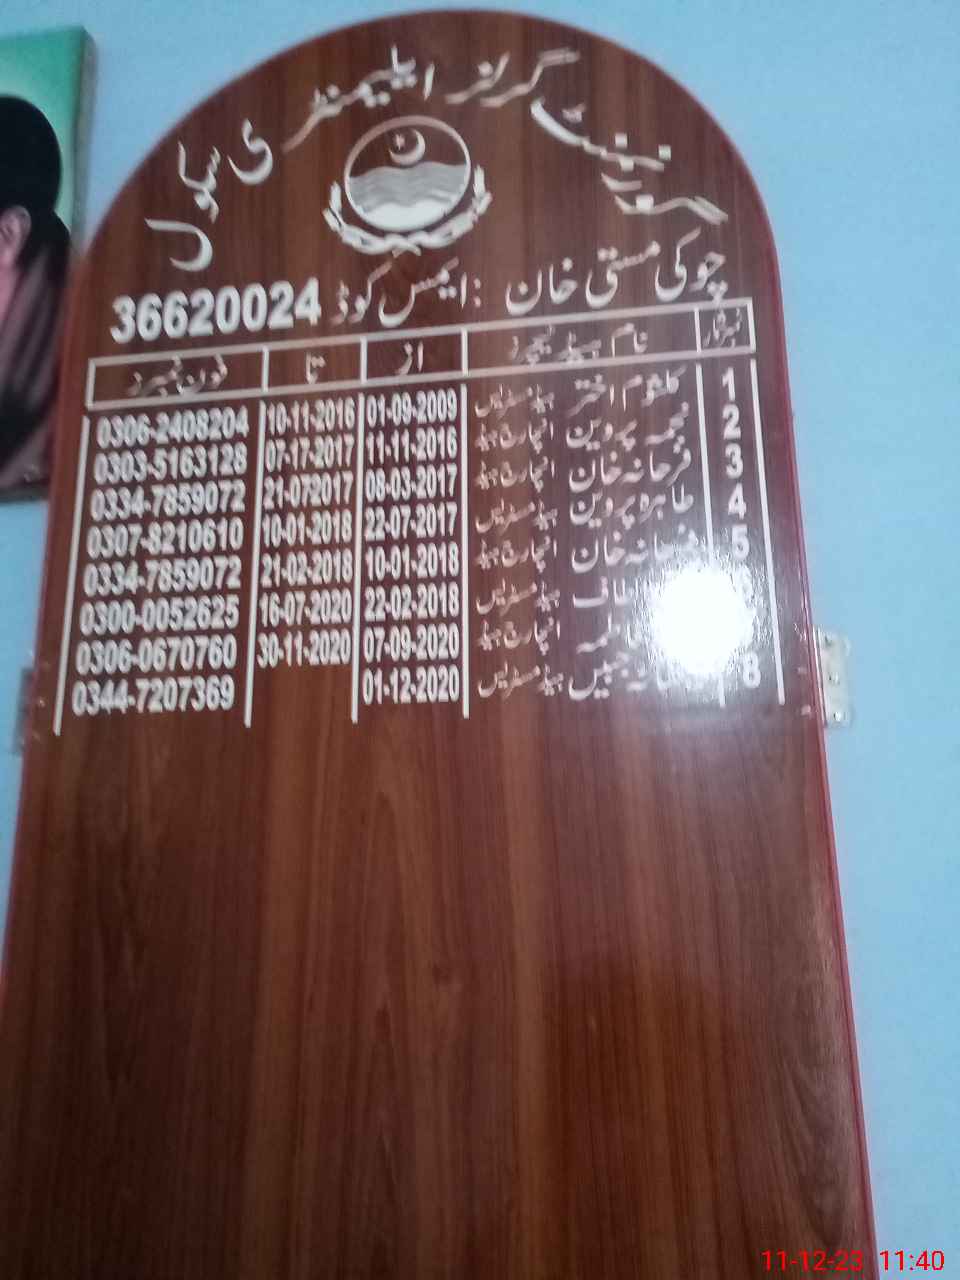 گورنمنٹ گرلز ایلیمنٹری سکول
چوکی مستی خان : ایمس کوڈ 36620024
نمبر شمار نام ہیڈ ٹیچرز از تا فون نمبرز
1 کلثوم اختر ہیڈ مسٹریس 01-09-2009 10-11-2016 0306-2408204
2 نجمہ پروین انچارج ہیڈ 11-11-2016 07-17-2017 0303-5163128
3 فرحانہ خان انچارج ہیڈ 08-03-2017 21-072017 0334-7859072
4 طاہرہ پروین ہیڈ مسٹریس 22-07-2017 10-01-2018 0307-8210610
5 فرحانہ خان انچارج ہیڈ 10-01-2018 21-02-2018 0334-7859072
ہیڈ مسٹریس 22-02-2018 16-07-2020 0300-0052625
انچارج ہیڈ 07-09-2020 30-11-2020 0306-0670760
8 جبیں ہیڈ مسٹریس 01-12-2020 0344-7207369
11-12-23 11:40